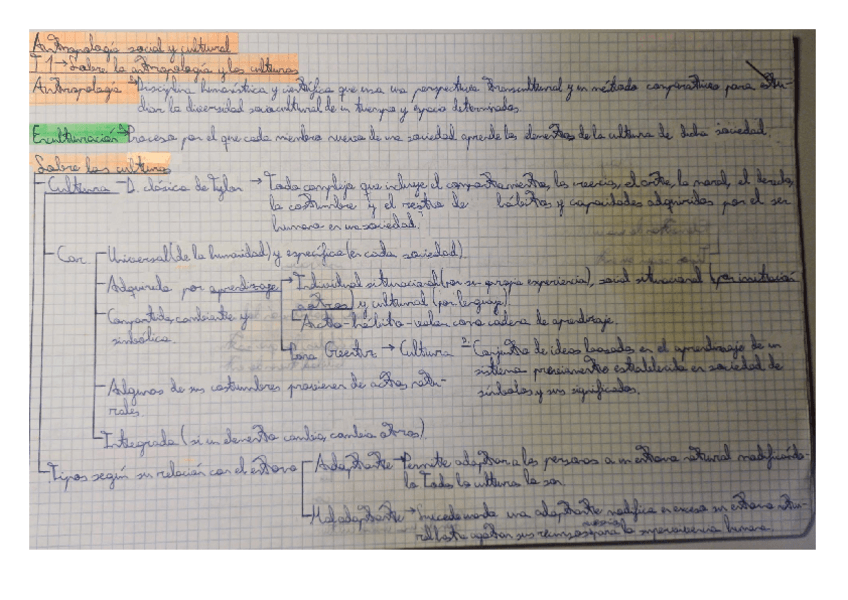 Antropología social y cultural
T.1→Sobre la antropología y las culturas
Antropología→Disciplina humanística y científica que usa una perspectiva transcultural y un método comparativo para estu-
diar la diversidad sociocultural de un tiempo y espacio determinados.
Enculturación→Proceso por el que cada miembro nuevo de una sociedad aprende los elementos de la cultura de dicha sociedad.
Sobre las culturas
Cultura→D. clásica de Tylor→Todo complejo que incluye el comportamiento, las creencias, el arte, la moral, el derecho,
la costumbre y el resto de hábitos y capacidades adquiridos por el ser
humano en una sociedad.
Car Universal (de la humanidad) y específica (en cada sociedad).
Adquirida por aprendizaje→Individual situacional (por su propia experiencia), social situacional (por imitación
a otros) y cultural (por lenguaje).
Acto-hábito- como cadena de aprendizaje.
Compartida, cambiante y
simbólica.
Para Geertz→Cultura=Conjunto de ideas basadas en el aprendizaje de un
sistema previamente establecido en sociedad de
símbolos y sus significados.
Algunas de sus costumbres provienen de actos natu-
rales.
Integrada (si un elemento cambia, cambia otros).
Tipos según su relación con el entorno Adaptante→Permite adaptar a las personas a un entorno natural modificándo-
lo. Todas las culturas lo son.
Maladaptante→Sucede cuando una adaptante modifica en exceso su entorno natu-
ral hasta agotar sus recursos para la supervivencia humana.